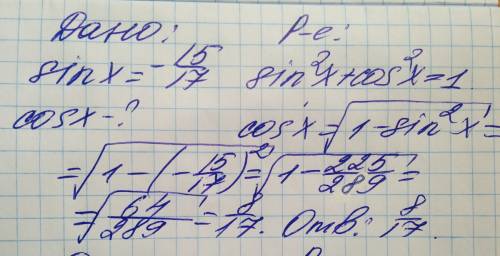 Дано: Р-е:
sinx = -15/17 sin²x+cos²x=1
cosx-? cosx=√(1-sin²x)=
=√(1-(-15/17)²)=√(1-225/289)=
=√(64/289)=8/17. Отв: 8/17.